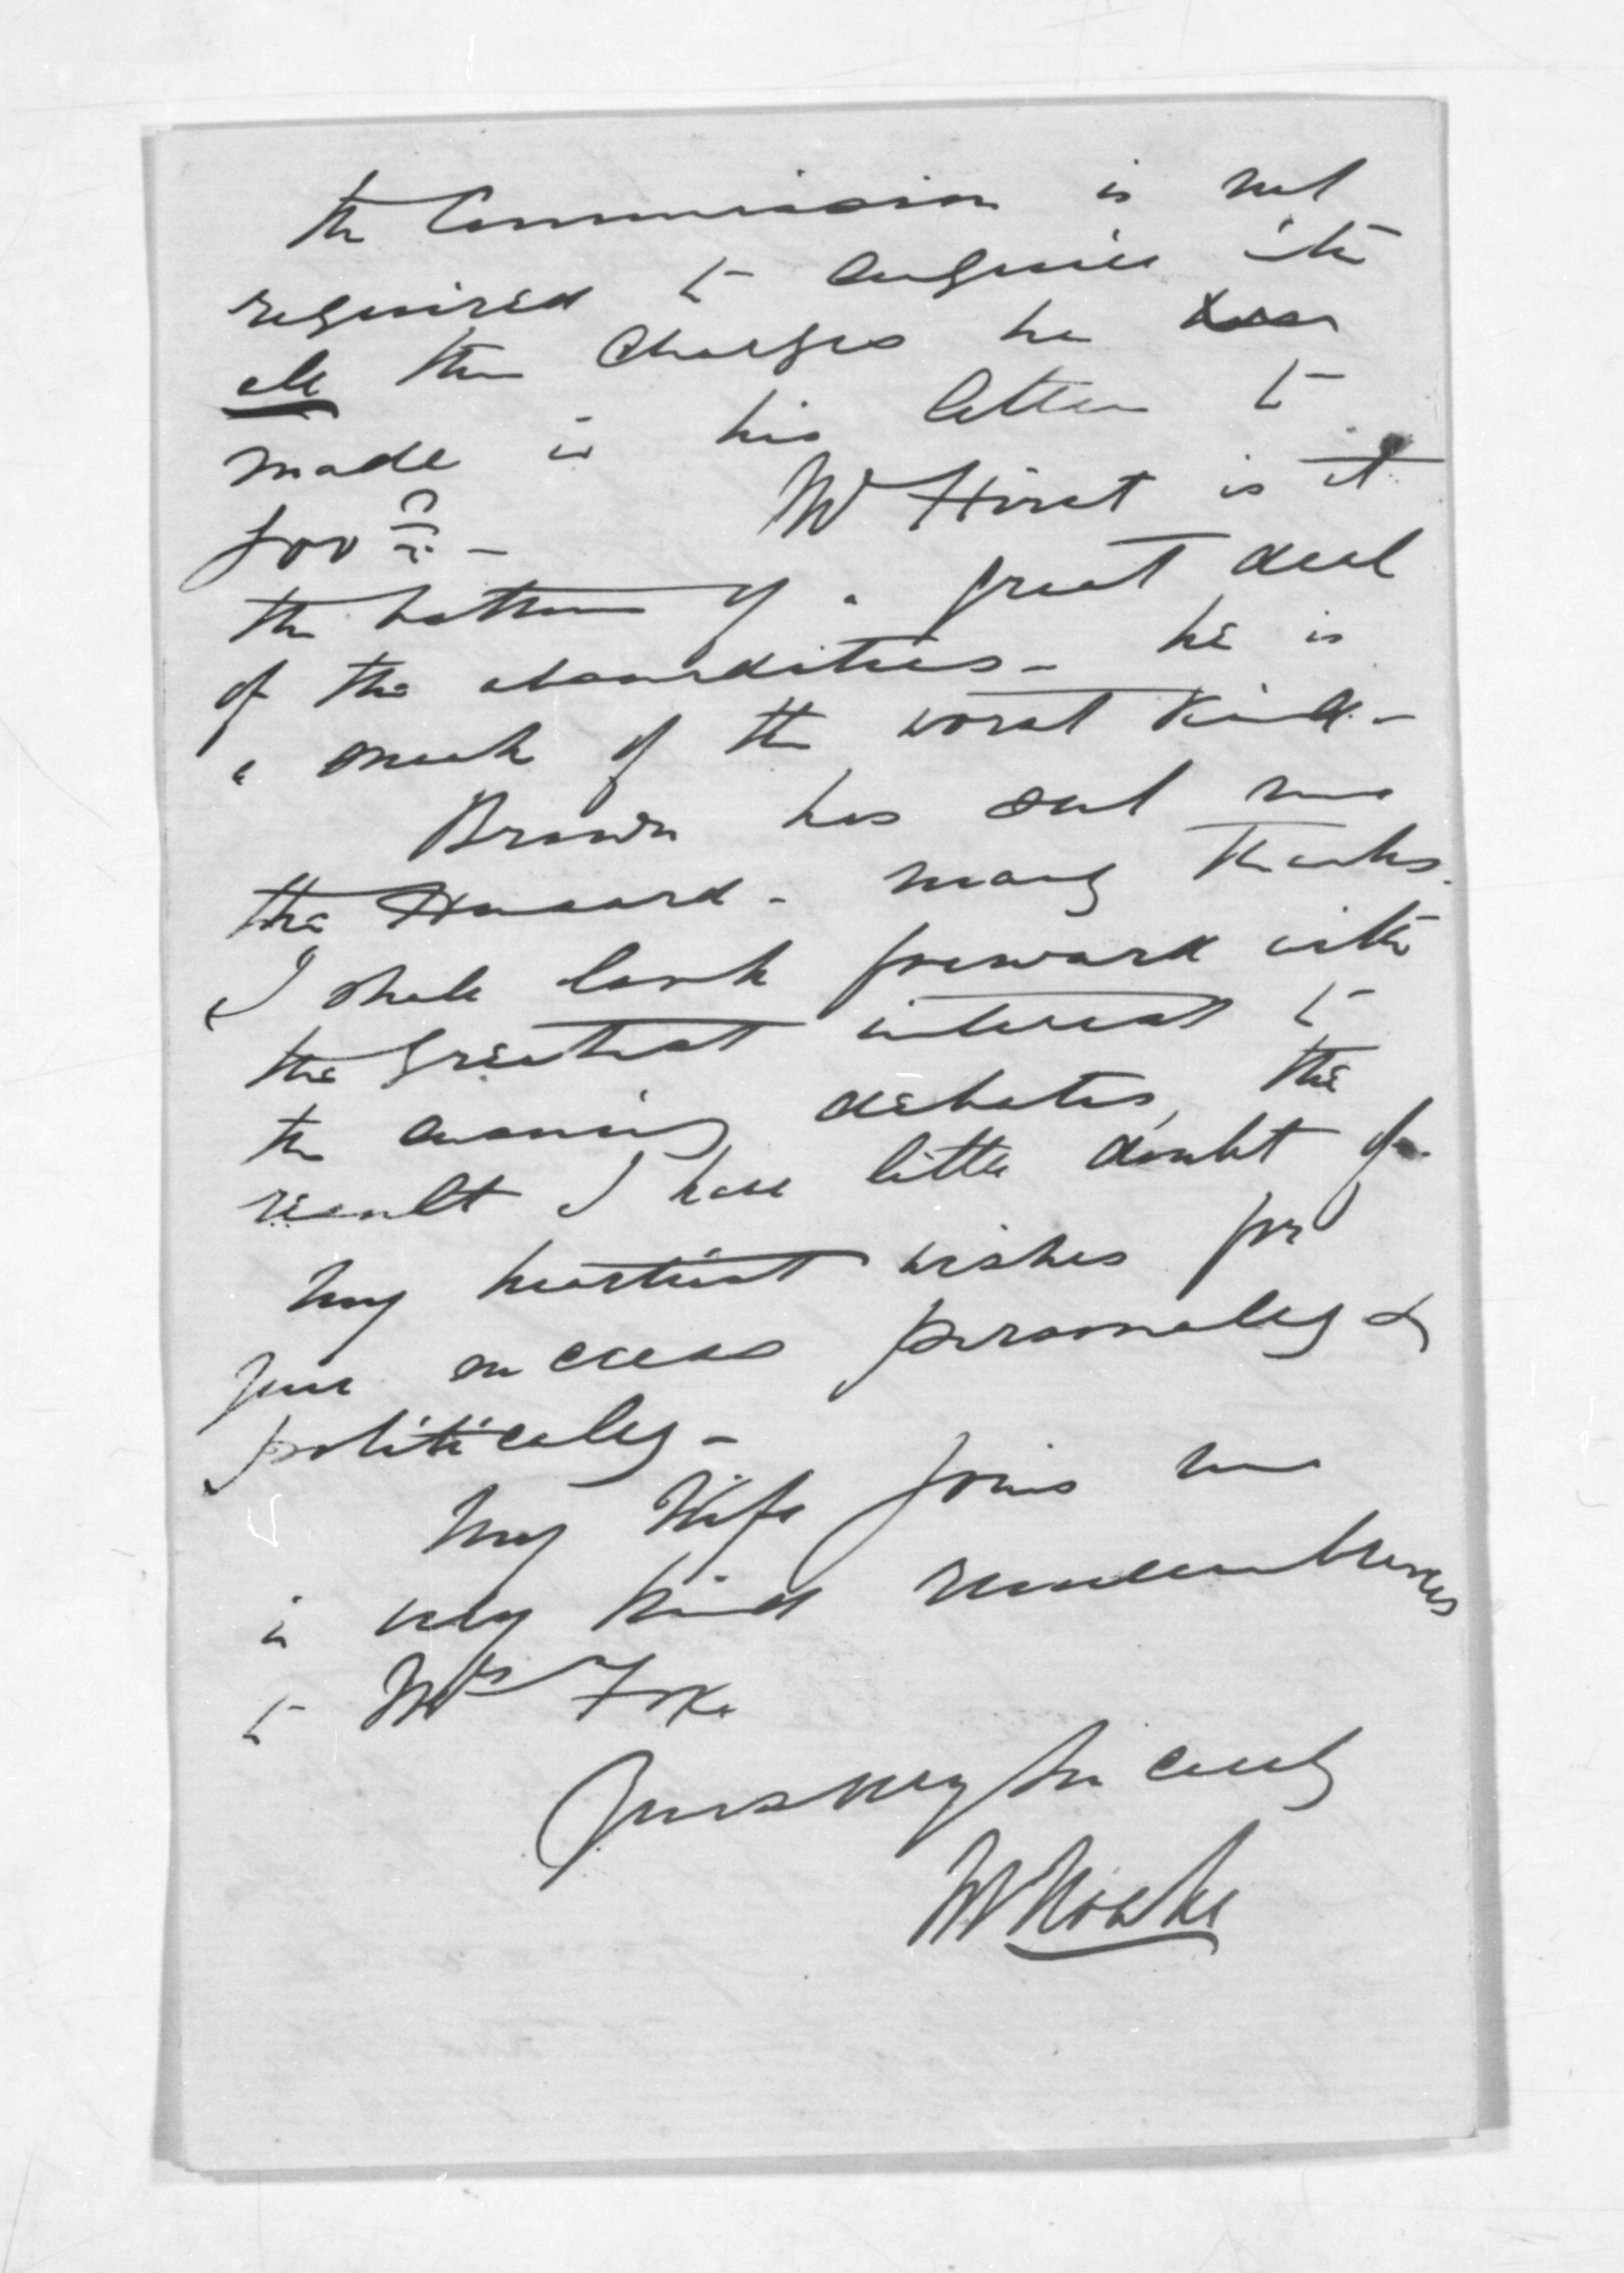 the Commission is not
required to enquire into
all the charges he has
made in his letter to
Gov<sup>r</sup> -
Mr Hirst is at
the bottom of a great deal
of the absurdities - he is
a sneak of the worst kind -
Brown has sent me
the Hansard - many thanks.
I shall look forward with
the greatest interest to
the ensuing debates, the
result I have little doubt of.
My heartiest wishes for
your success personally &
politically -
My Wife joins me
in very kind remembrances
to Mrs Fox.
Yours very sincerely